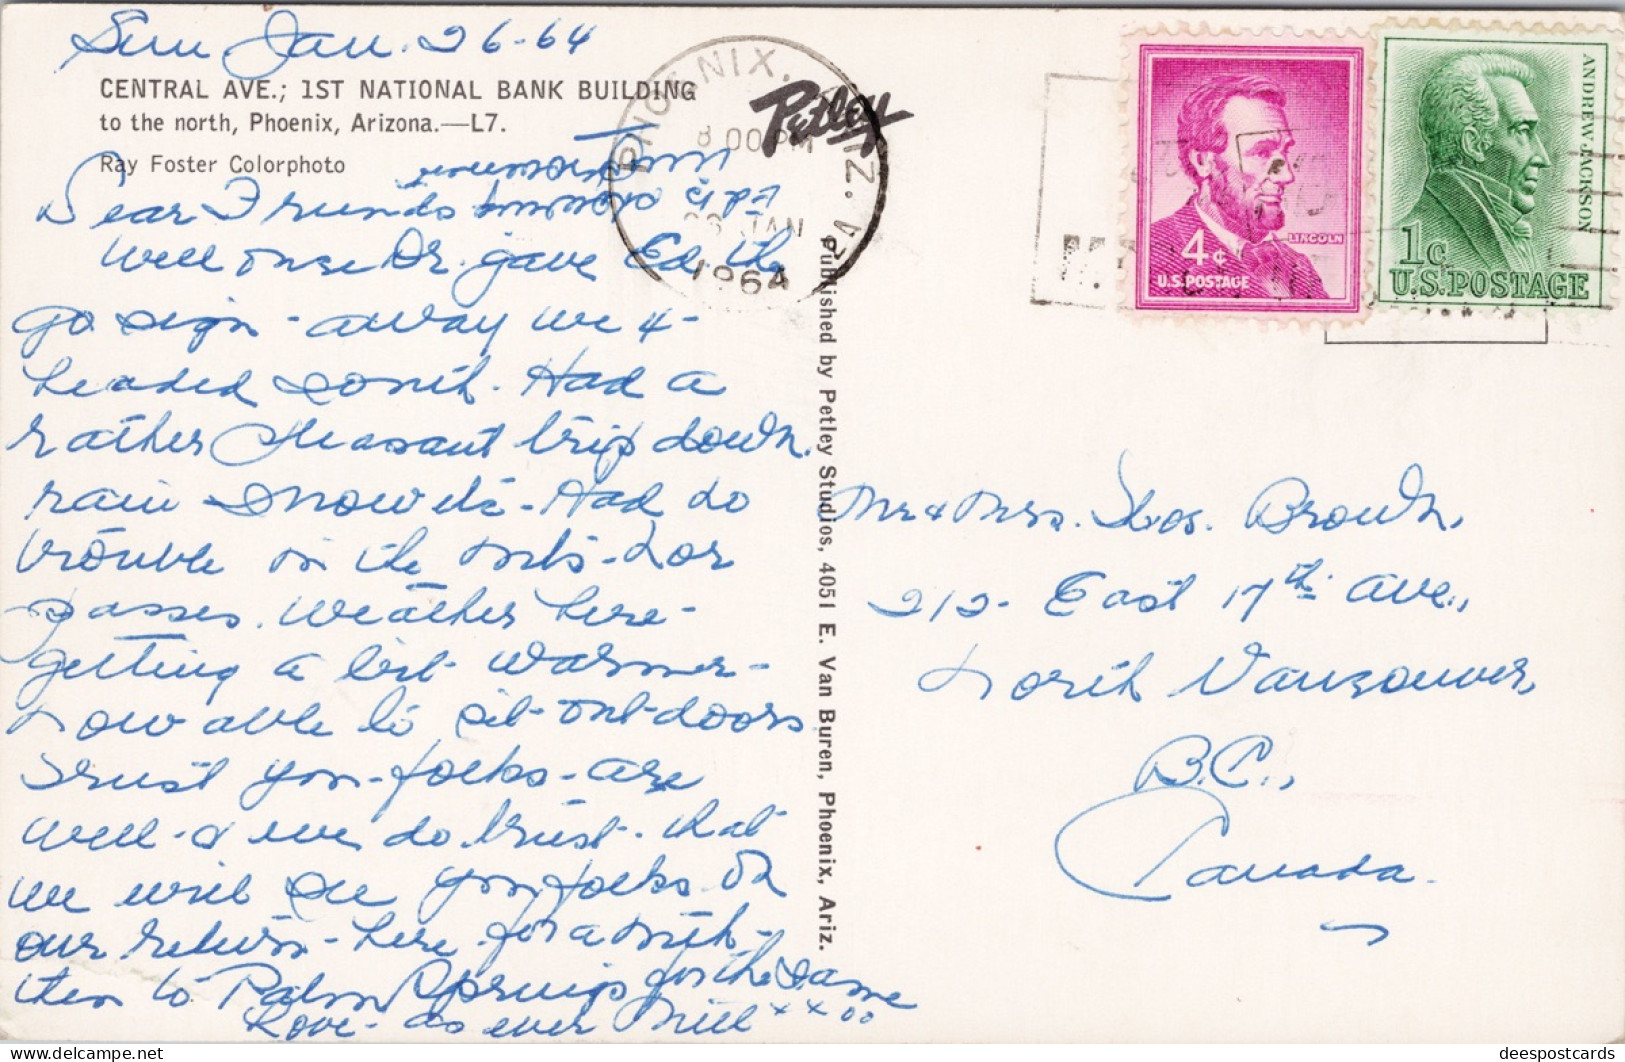 Sun Jan. 26-64
CENTRAL AVE.; 1ST NATIONAL BANK BUILDING
to the north, Phoenix, Arizona.—L7.
Ray Foster Colorphoto
Petley
PHOENIX, ARIZ.
8 00 PM
26 JAN
1964
Dear Friends
Ed is
Well once Dr. gave Ed the
go sign - away we &
headed south. Had a
rather pleasant trip down.
rain & snow etc - Had no
trouble in the mts - nor
passes. Weather here -
getting a bit warmer -
now able to sit out-doors
Trust you - folks - are
well - & we do trust - that
we will see you folks on
our return - here for a mth -
then to Palm Springs for the same
Love - as ever Mill x x oo
Published by Petley Studios, 4051 E. Van Buren, Phoenix, Ariz.
LINCOLN
4¢
U.S. POSTAGE
ANDREW JACKSON
1c
U.S. POSTAGE
Mr & Mrs. Thos. Brown,
212 - East 17th Ave.,
North Vancouver,
B.C.,
Canada.
deespostcards